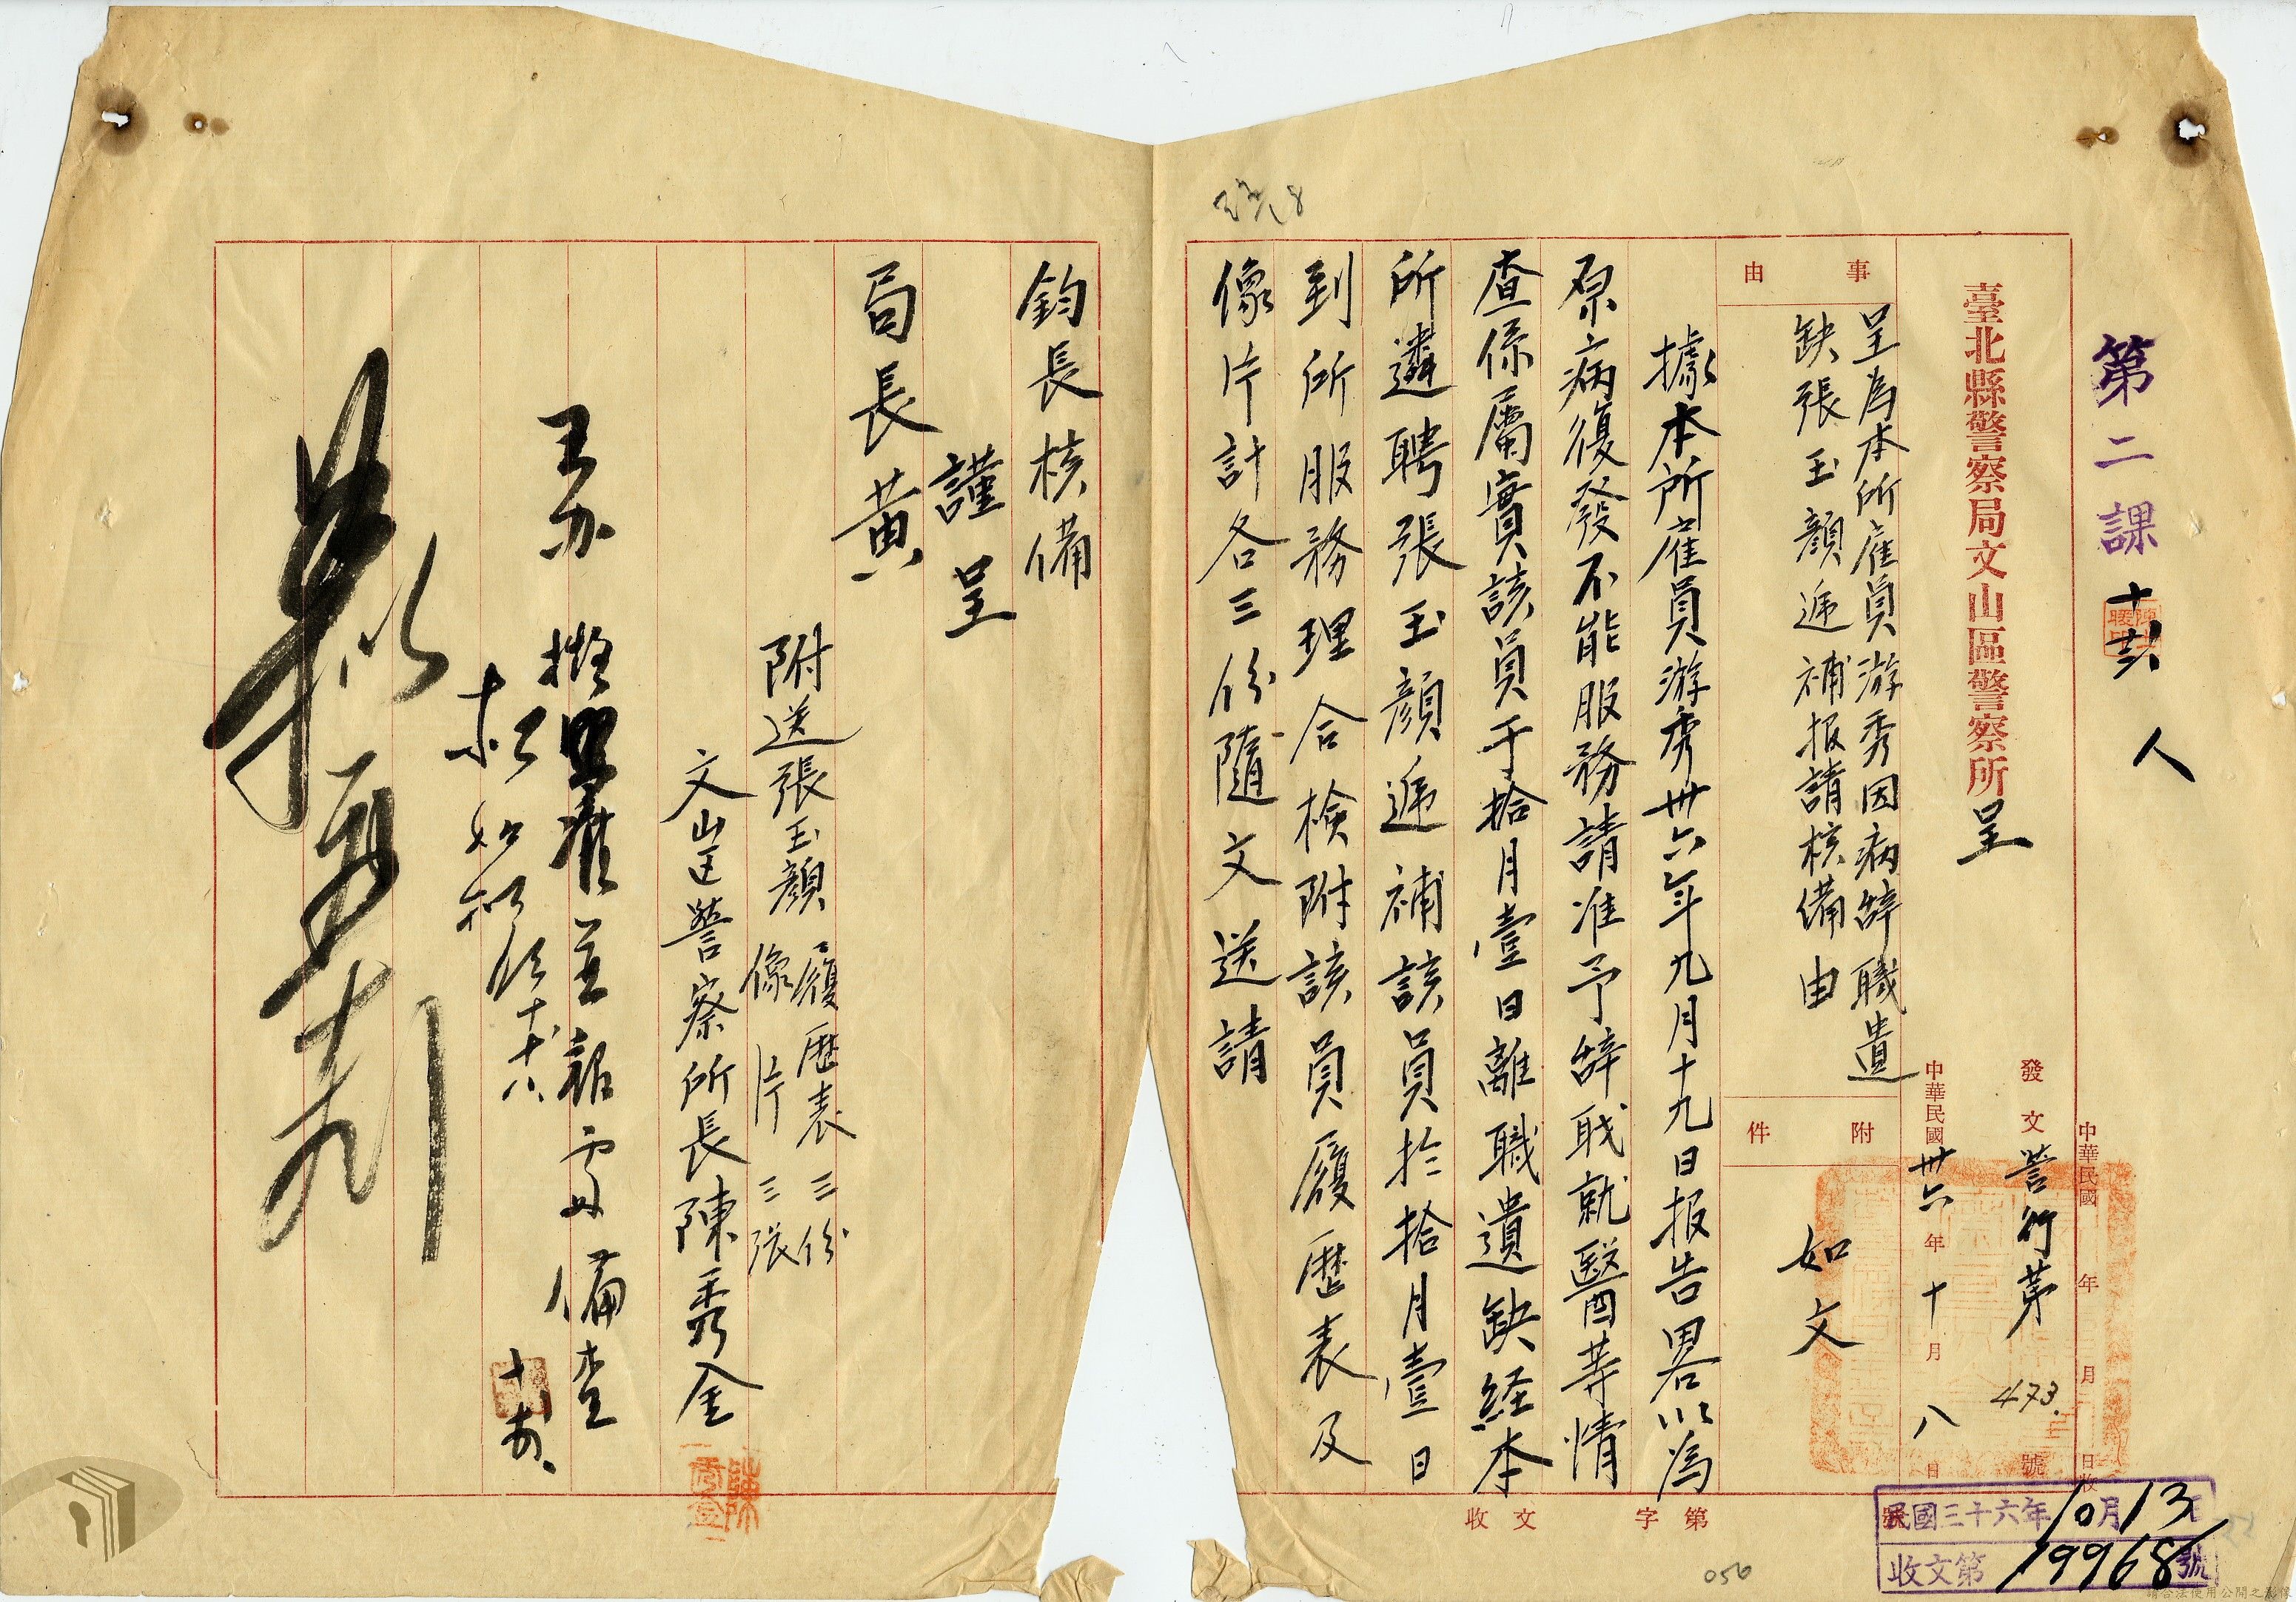 第二課
人
臺北縣警察局文山區警察所呈
中華民國 年 月 日收
發文 警行第 473. 號
中華民國卅六年十月八日
事由
呈為本所雇員游秀因病辭職遺
缺張玉顏遞補报請核備由
附件
如文
據本所雇員游秀卅六年九月十九日报告畧以為
原病復發不能服務請准予辞职就醫荨情
查係屬實該員于拾月壹日離職遺缺経本
所遴聘張玉顏遞補該員扵拾月壹日
到所服務理合檢附該員履歷表及
像片計各三份隨文送請
第 字
收文
民國三十六年10月13
收文第19968號
056
鈞長核備
謹呈
局長黃
附送張玉顏履歷表三份
像片三張
文山區警察所長陳秀金
擬 備查
請合法使用公開之影像